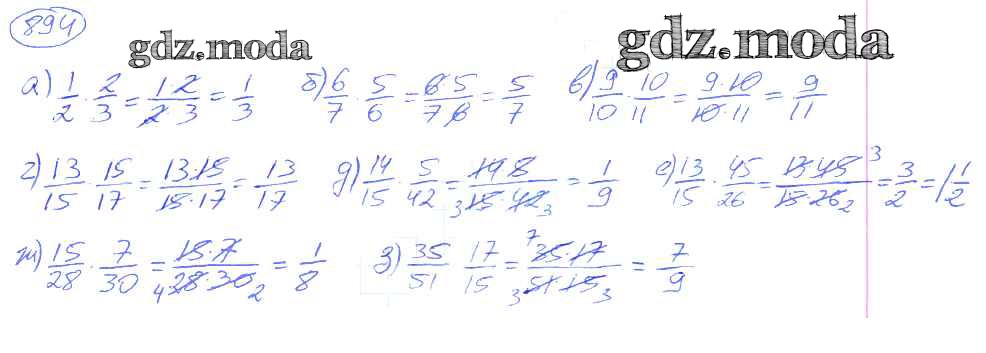 894
gdz.moda gdz.moda
а) 1/2 · 2/3 = 1·2/2·3 = 1/3 б) 6/7 · 5/6 = 6·5/7·6 = 5/7 в) 9/10 · 10/11 = 9·10/10·11 = 9/11
г) 13/15 · 15/17 = 13·15/15·17 = 13/17 д) 14/15 · 5/42 = 14·5/3 15·42 3 = 1/9 е) 13/15 · 45/26 = 13·45 3/15·26 2 = 3/2 = 1 1/2
ж) 15/28 · 7/30 = 15·7/4 28·30 2 = 1/8 з) 35/51 17/15 = 7 35·17/3 51·15 3 = 7/9